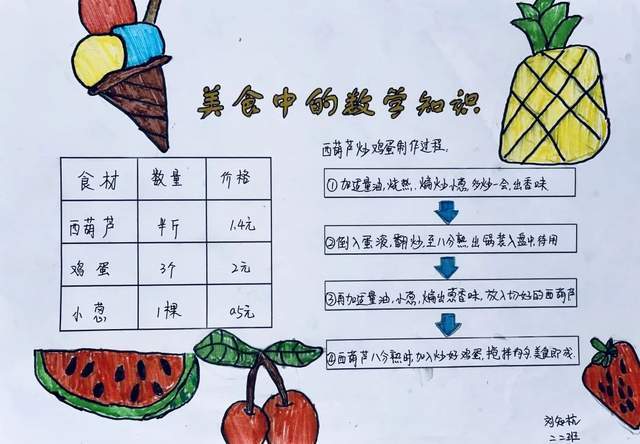 美食中的数学知识
食材 数量 价格
西葫芦 半斤 1.4元
鸡蛋 3个 2元
小葱 1棵 0.5元
西葫芦炒鸡蛋制作过程:
①加适量油,烧热,煸炒小葱,多炒一会,出香味
②倒入蛋液,翻炒,至八分熟,出锅装入盘中,待用
③再加适量油,小葱,煸出葱香味,放入切好的西葫芦
④西葫芦八分熟时,加入炒好鸡蛋,搅拌均匀,美食即成.
二.二班